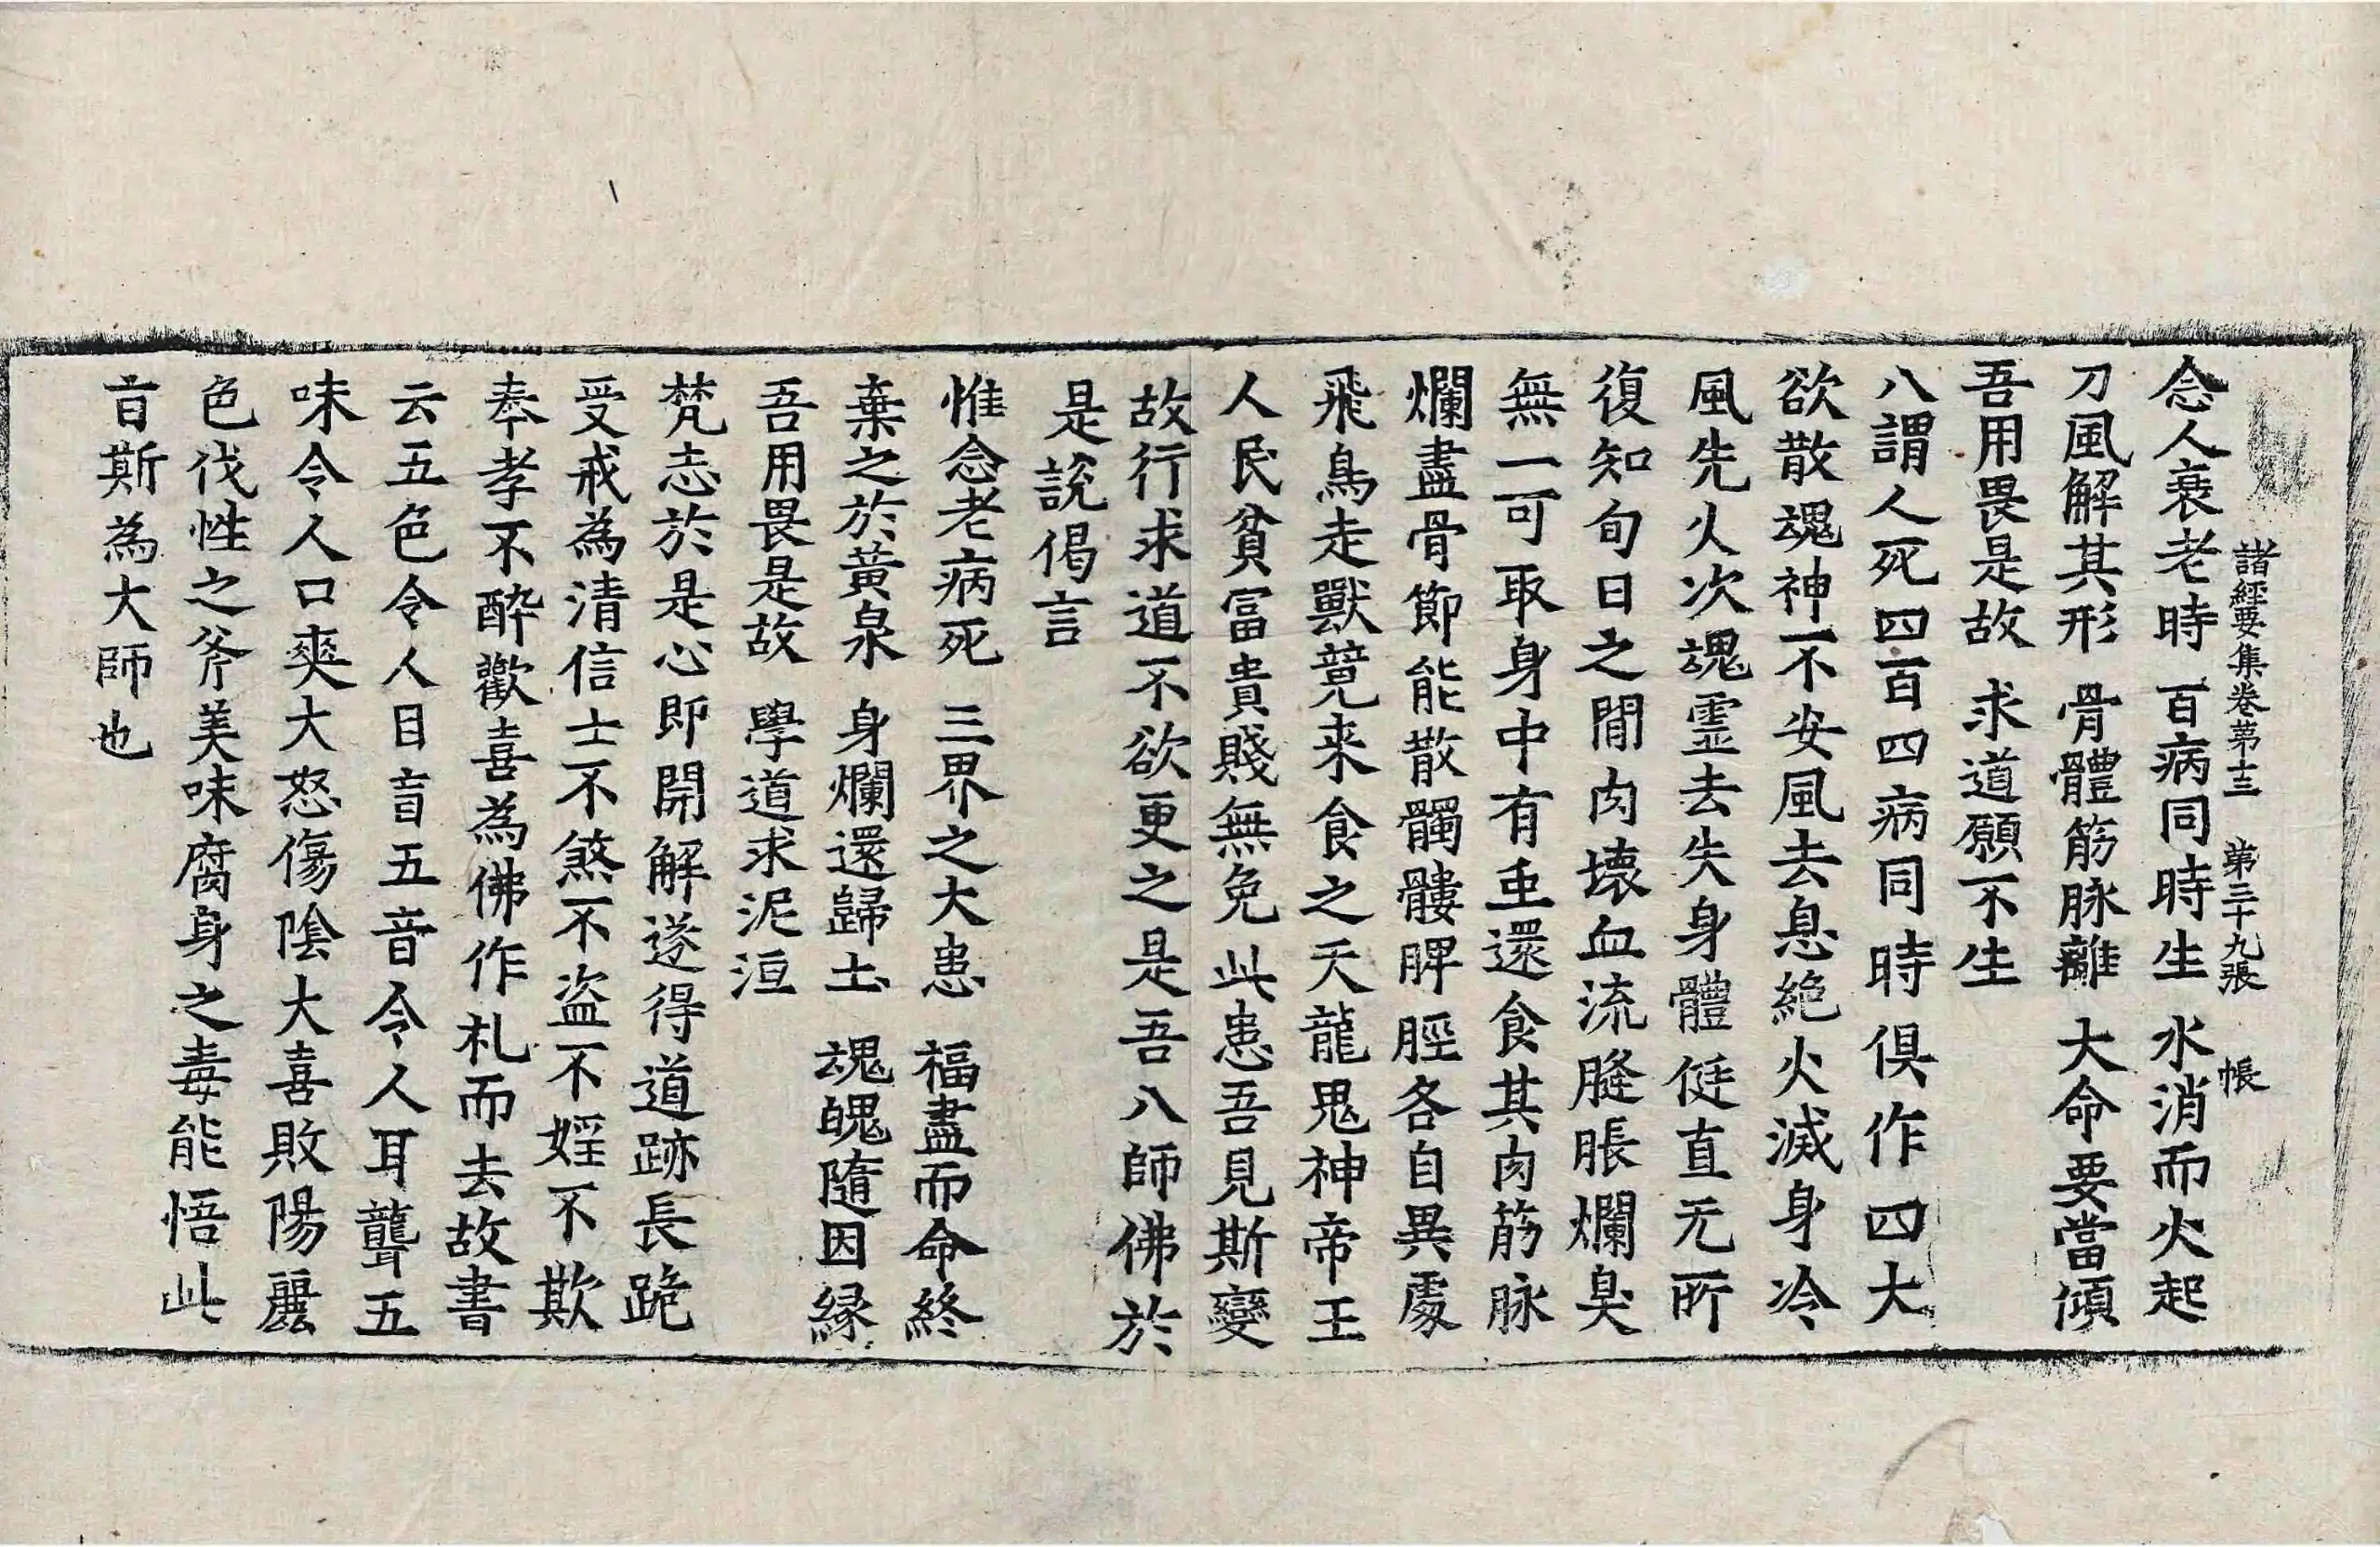 諸經要集卷第十三 第三十九張 帳
念人衰老時 百病同時生 水消而火起
刀風解其形 骨體筋脉離 大命要當傾
吾用畏是故 求道願不生
八謂人死四百四病同時俱作四大
欲散魂神不安風去息絶火滅身冷
風先火次魂霊去失身體侹直无所
復知旬日之間肉壞血流膖脹爛臭
無一可取身中有虫還食其肉筋脉
爛盡骨節能散髑髏脾脛各自異處
飛鳥走獸競来食之天龍鬼神帝王
人民貧冨貴賤無免此患吾見斯變
故行求道不欲更之是吾八師佛於
是說偈言
惟念老病死 三界之大患 福盡而命終
棄之於黃泉 身爛還歸土 魂魄隨因縁
吾用畏是故 學道求泥洹
梵志於是心即開解遂得道跡長跪
受戒為清信士不煞不盗不婬不欺
奉孝不酔歡喜為佛作礼而去故書
云五色令人目盲五音令人耳聾五
味令人口爽大怒傷陰大喜敗陽麗
色伐性之斧美味腐身之毒能悟此
言斯為大師也